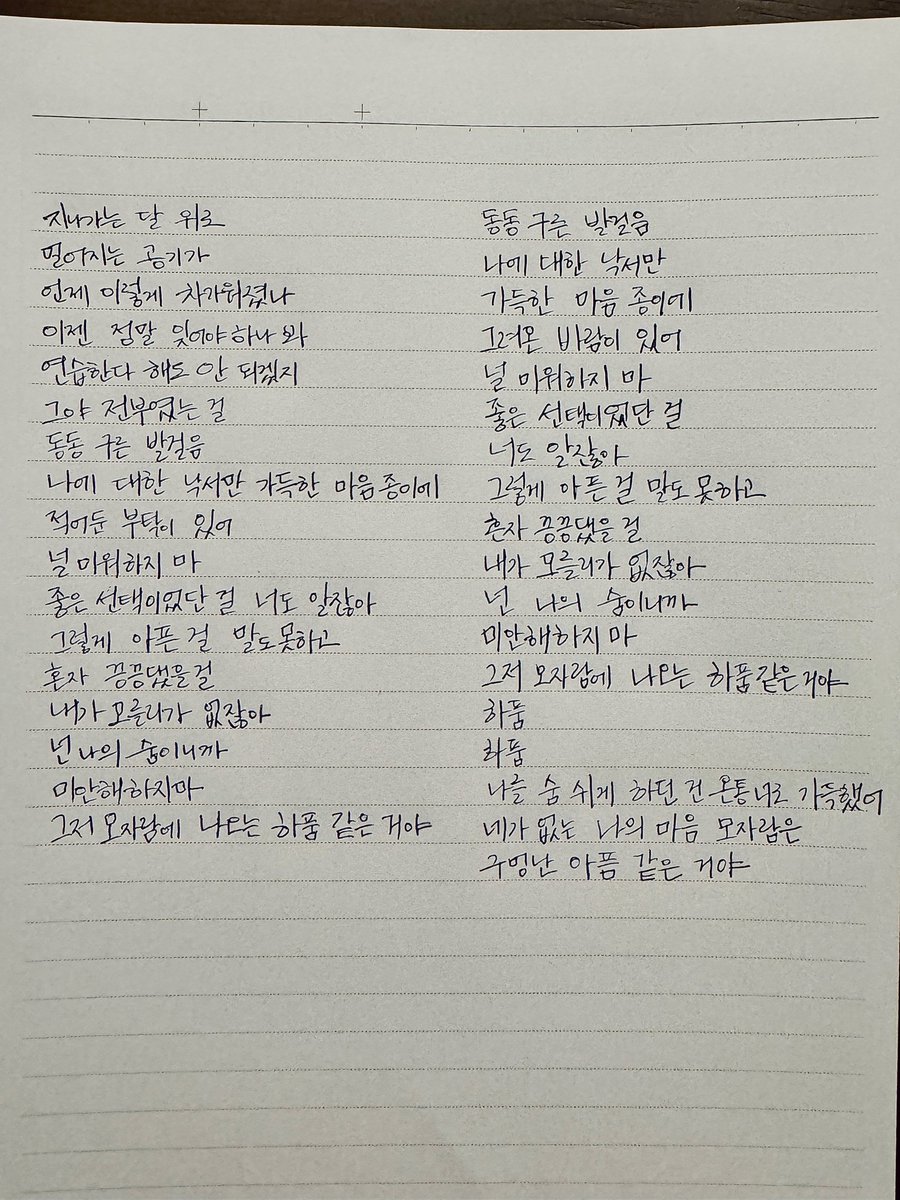 지나가는 달 위로
멀어지는 공기가
언제 이렇게 차가워졌나
이젠 정말 잊어야하나 봐
연습한다 해도 안 되겠지
그야 전부였는 걸
동동 구른 발걸음
나에 대한 낙서만 가득한 마음종이에
적어둔 부탁이 있어
널 미워하지 마
좋은 선택이었단 걸 너도 알잖아
그렇게 아픈 걸 말도못하고
혼자 끙끙댔을걸
내가 모를리가 없잖아
넌 나의 숨이니까
미안해하지마
그저 모자람에 나오는 하품 같은 거야
동동 구른 발걸음
나에 대한 낙서만
가득한 마음종이에
그려온 바람이 있어
널 미워하지 마
좋은 선택이었단 걸
너도 알잖아
그렇게 아픈걸 말도못하고
혼자 끙끙댔을 걸
내가 모를리가 없잖아
넌 나의 숨이니까
미안해하지마
그저 모자람에 나오는 하품같은거야
하품
하품
나를 숨 쉬게 하던 건 온통너로 가득했어
네가 없는 나의 마음 모자람은
구멍난 아픔 같은 거야